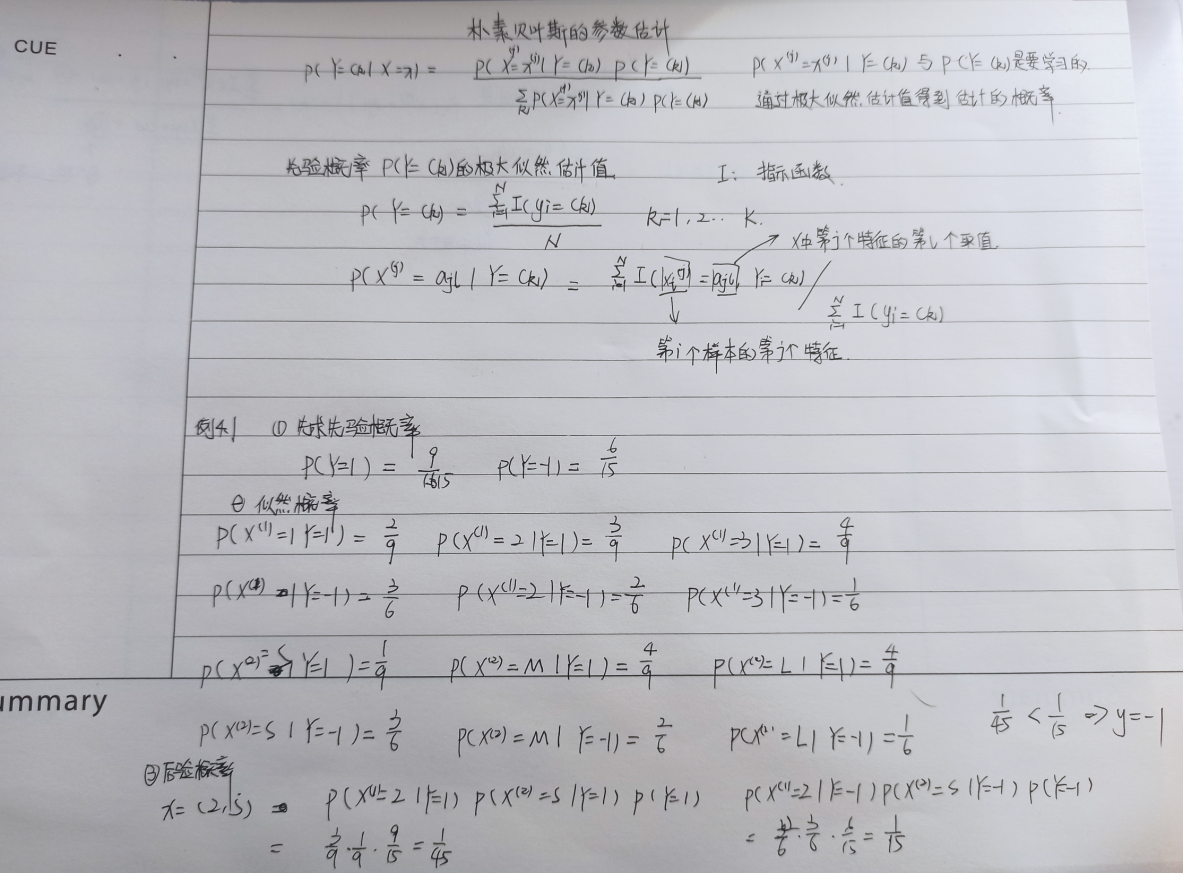 CUE
朴素贝叶斯的参数估计
P(Y=Ck|X=x) = P(X^(j)=x^(j)|Y=Ck) P(Y=Ck) / Σk P(X^(j)=x^(j)|Y=Ck) P(Y=Ck)
P(X^(j)=x^(j)|Y=Ck)与P(Y=Ck)是要学习的.
通过极大似然估计值得到估计的概率
先验概率 P(Y=Ck)的极大似然估计值
I: 指示函数.
P(Y=Ck) = Σ_{i=1}^N I(yi=Ck) / N   k=1,2.. K.
X中第j个特征的第l个取值
P(X^(j)=ajl|Y=Ck) = Σ_{i=1}^N I(xi^(j)=ajl, Y=Ck) / Σ_{i=1}^N I(yi=Ck)
第i个样本的第j个特征.
例4.1 ① 先求先验概率
P(Y=1) = 9/15   P(Y=-1) = 6/15
② 似然概率
P(X^(1)=1|Y=1) = 2/9   P(X^(1)=2|Y=1) = 3/9   P(X^(1)=3|Y=1) = 4/9
P(X^(1)=1|Y=-1) = 3/6   P(X^(1)=2|Y=-1) = 2/6   P(X^(1)=3|Y=-1) = 1/6
P(X^(2)=S|Y=1) = 1/9   P(X^(2)=M|Y=1) = 4/9   P(X^(2)=L|Y=1) = 4/9
ummary
P(X^(2)=S|Y=-1) = 3/6   P(X^(2)=M|Y=-1) = 2/6   P(X^(2)=L|Y=-1) = 1/6
1/45 < 1/15 => y=-1
③后验概率
x=(2,S)   P(X^(1)=2|Y=1) P(X^(2)=S|Y=1) P(Y=1)   P(X^(1)=2|Y=-1) P(X^(2)=S|Y=-1) P(Y=-1)
= 3/9 · 1/9 · 9/15 = 1/45   = 2/6 · 3/6 · 6/15 = 1/15